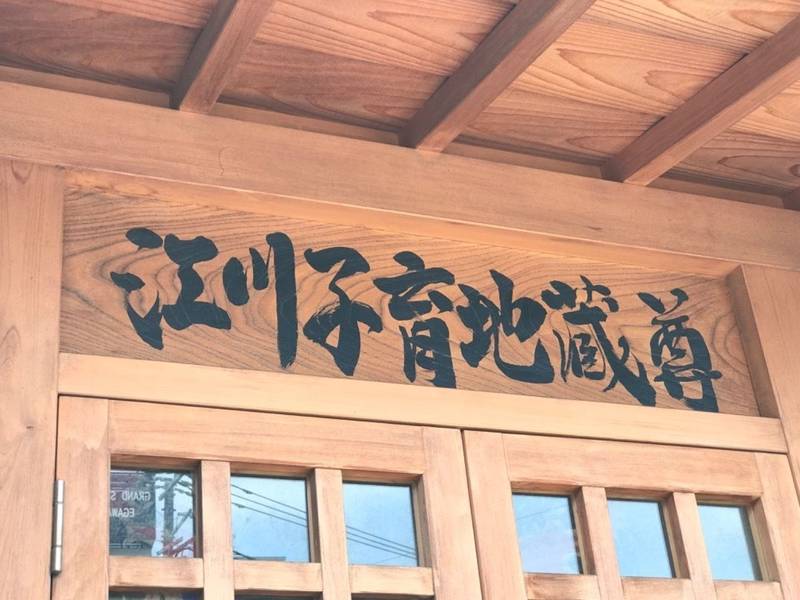 江川子育地蔵尊
GRAND S
EGAWA